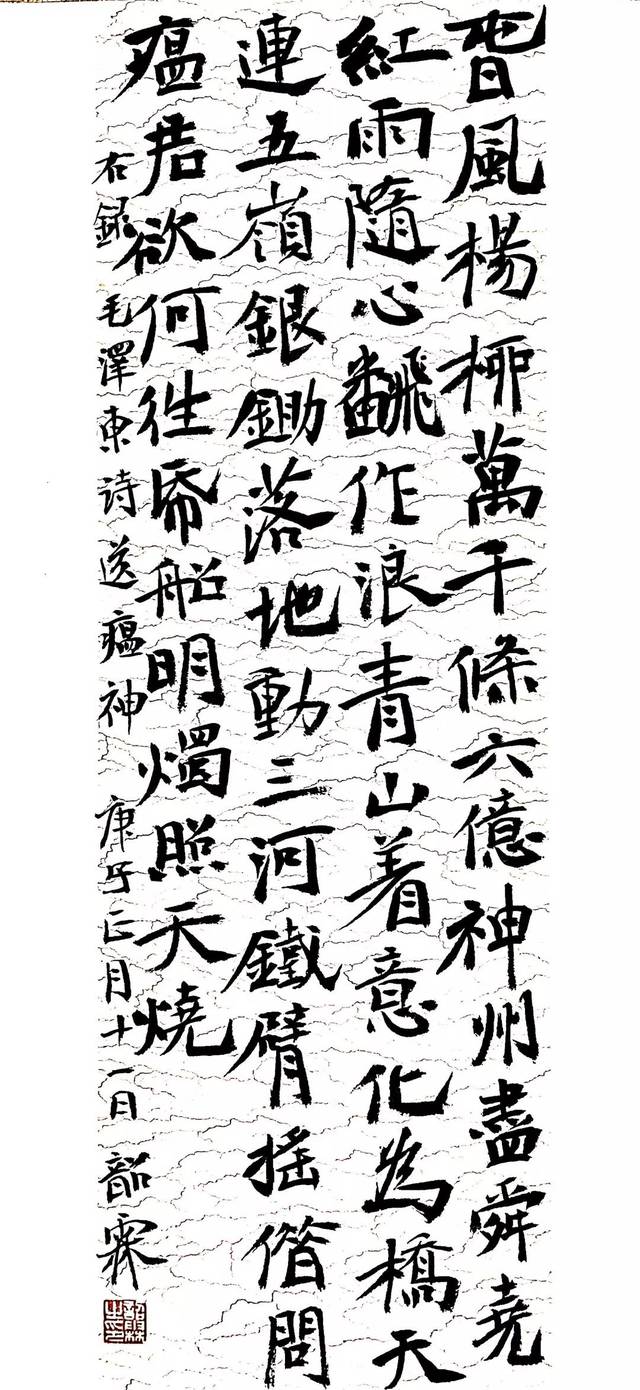 旾風楊柳萬千條六億神州盡舜堯
紅雨隨心飜作浪青山着意化為橋天
連五嶺銀鋤落地動三河鐵臂搖借問
瘟君欲何往帋船明燭照天燒
右錄 毛澤東詩送瘟神 庚子正月十一日 韶霖